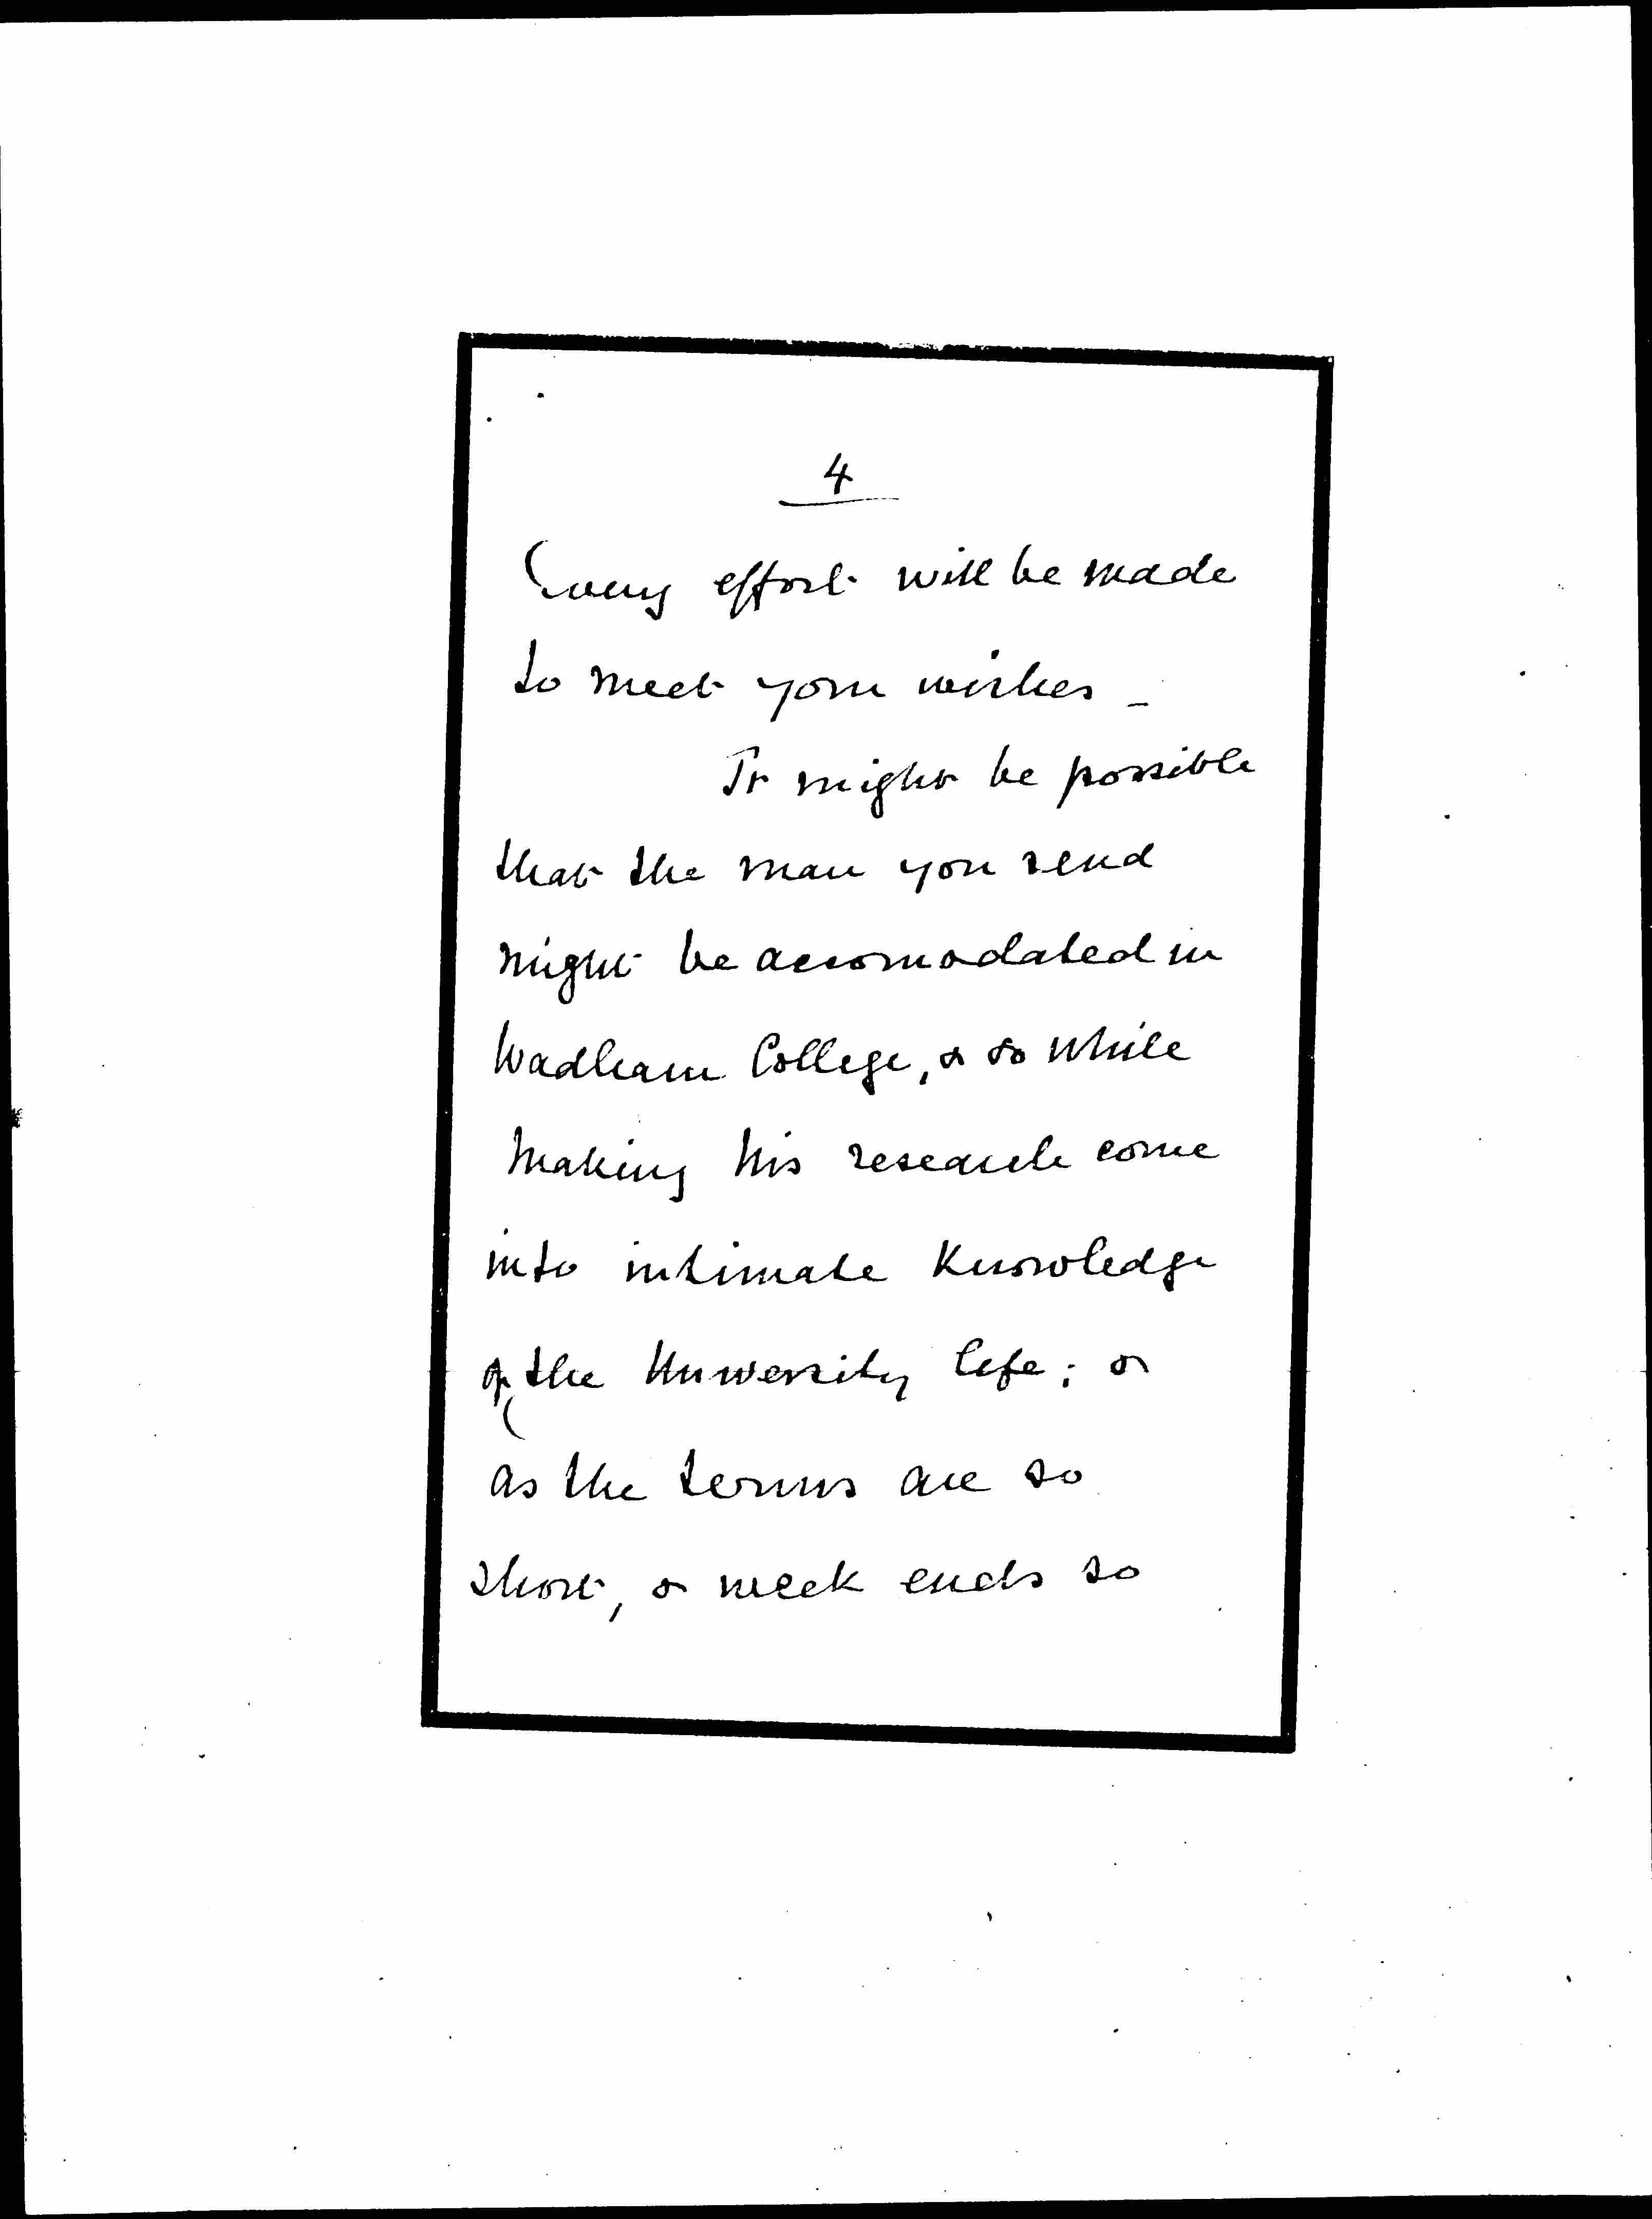 4
Every effort will be made
to meet your wishes -
It might be possible
that the man you send
might be accomodated in
Wadham College, & so while
making his research come
into intimate knowledge
of the University life; or
as the terms are so
short, & week ends so